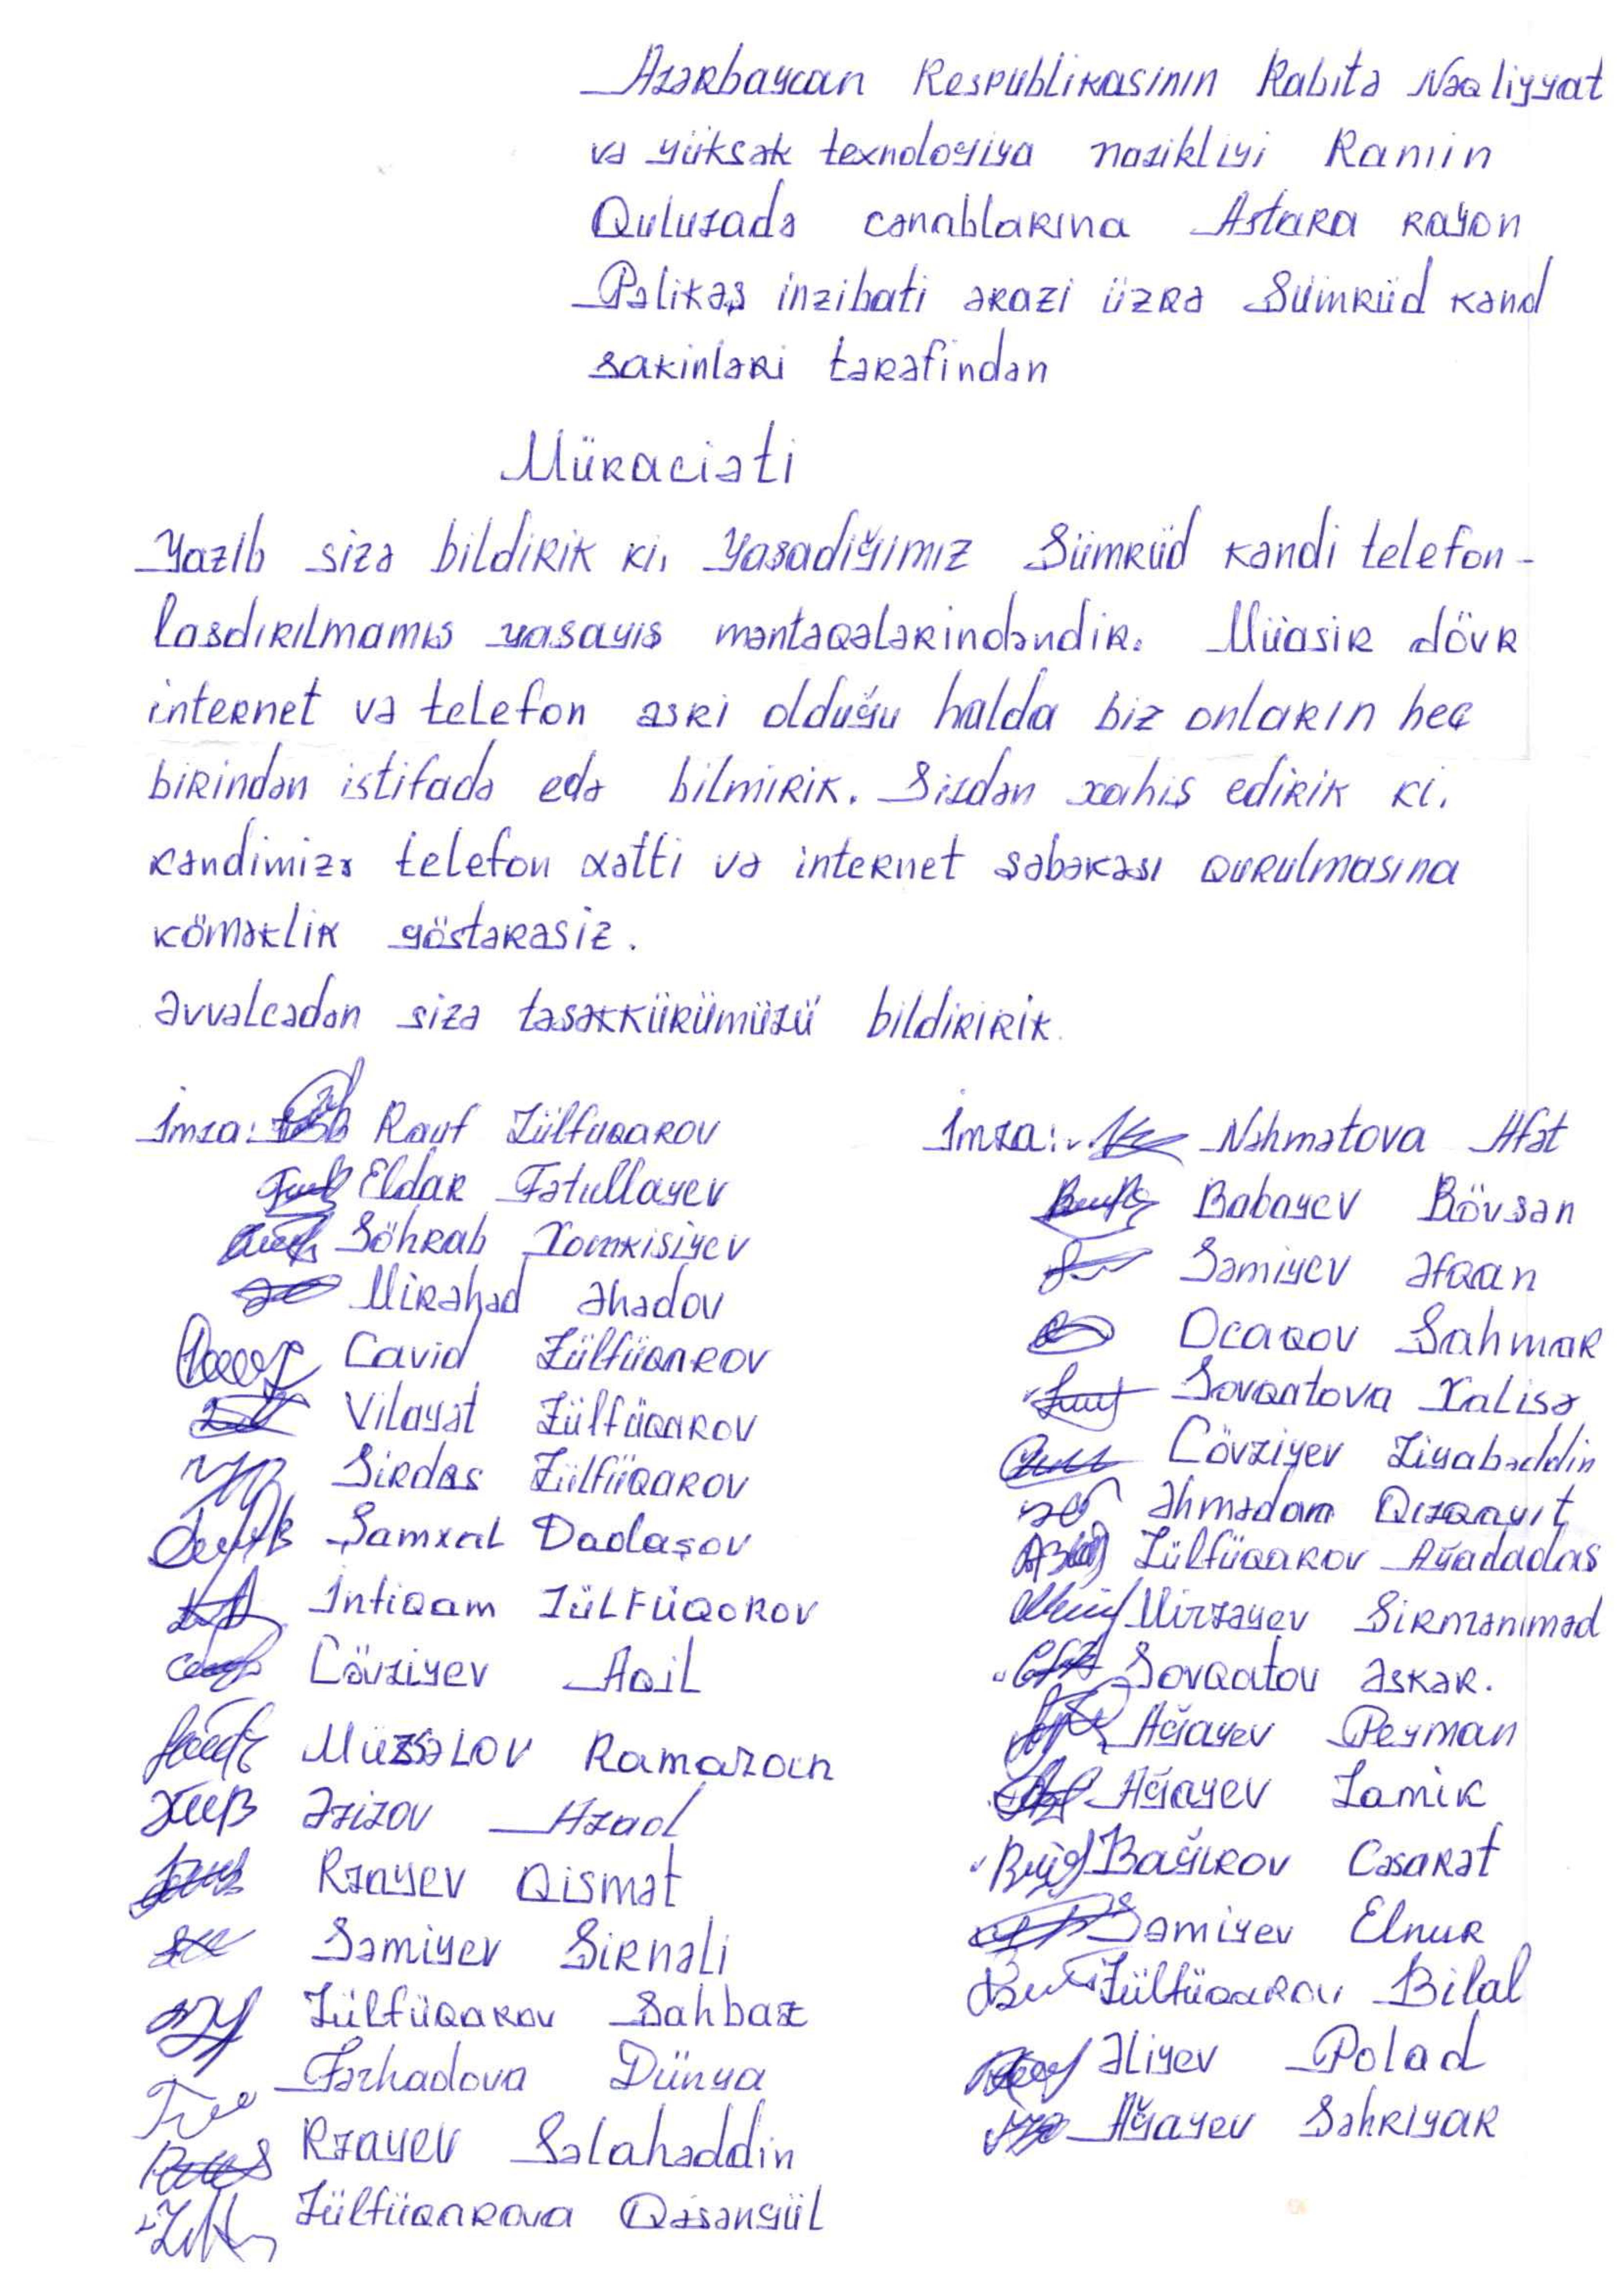 Azərbaycan Respublikasının Rabitə Nəqliyyat
və yüksək texnologiya nazikliyi Ramin
Quluzadə cənablarına Astara rayon
Pəlikəş inzibati ərazi üzrə Sümrüd kənd
sakinləri tərəfindən
Müraciəti
Yazıb sizə bildirik ki, yasadığımız Sümrüd kəndi telefon-
lasdırılmamıs yasayıs məntəqələrindəndir. Müasir dövr
internet və telefon əsri olduğu halda biz onların heç
birindən istifadə edə bilmirik. Sizdən xahiş edirik ki,
kəndimizə telefon xətti və internet şəbəkəsi qurulmasına
köməklik göstərəsiz.
Əvvəlcədən sizə təsəkkürümüzü bildiririk.
İmza: Rauf Zülfuqarov
Eldar Fətullayev
Söhrab Xomkisiyev
Mirəhəd Əhədov
Cavid Zülfüqarov
Vilayət Zülfüqarov
Sirdas Zülfüqarov
Şamxal Dadaşov
İntiqam Zülfüqorov
Cövziyev Aqil
Ramazan
Əzizov Azad
Rzayev Qismət
Səmiyev Sirnəli
Zülfüqarov Sahbaz
Fərhadova Dünya
Rzayev Səlahəddin
Zülfüqarova Qəsəngül
İmza: Nəhmətova Afət
Babayev Rövsən
Səmiyev Əfqan
Ocaqov Sahmar
Sovqatova Xalisə
Cövziyev Ziyabəddin
Əhmədam
Zülfüqarov Ağadadas
Mirzayev Sirməmməd
Sovqatov Əskər.
Ağayev Peyman
Ağayev Zamik
Bağırov Cəsarət
Səmiyev Elnur
Zülfüqarov Bilal
Əliyev Polad
Ağayev Səhriyar